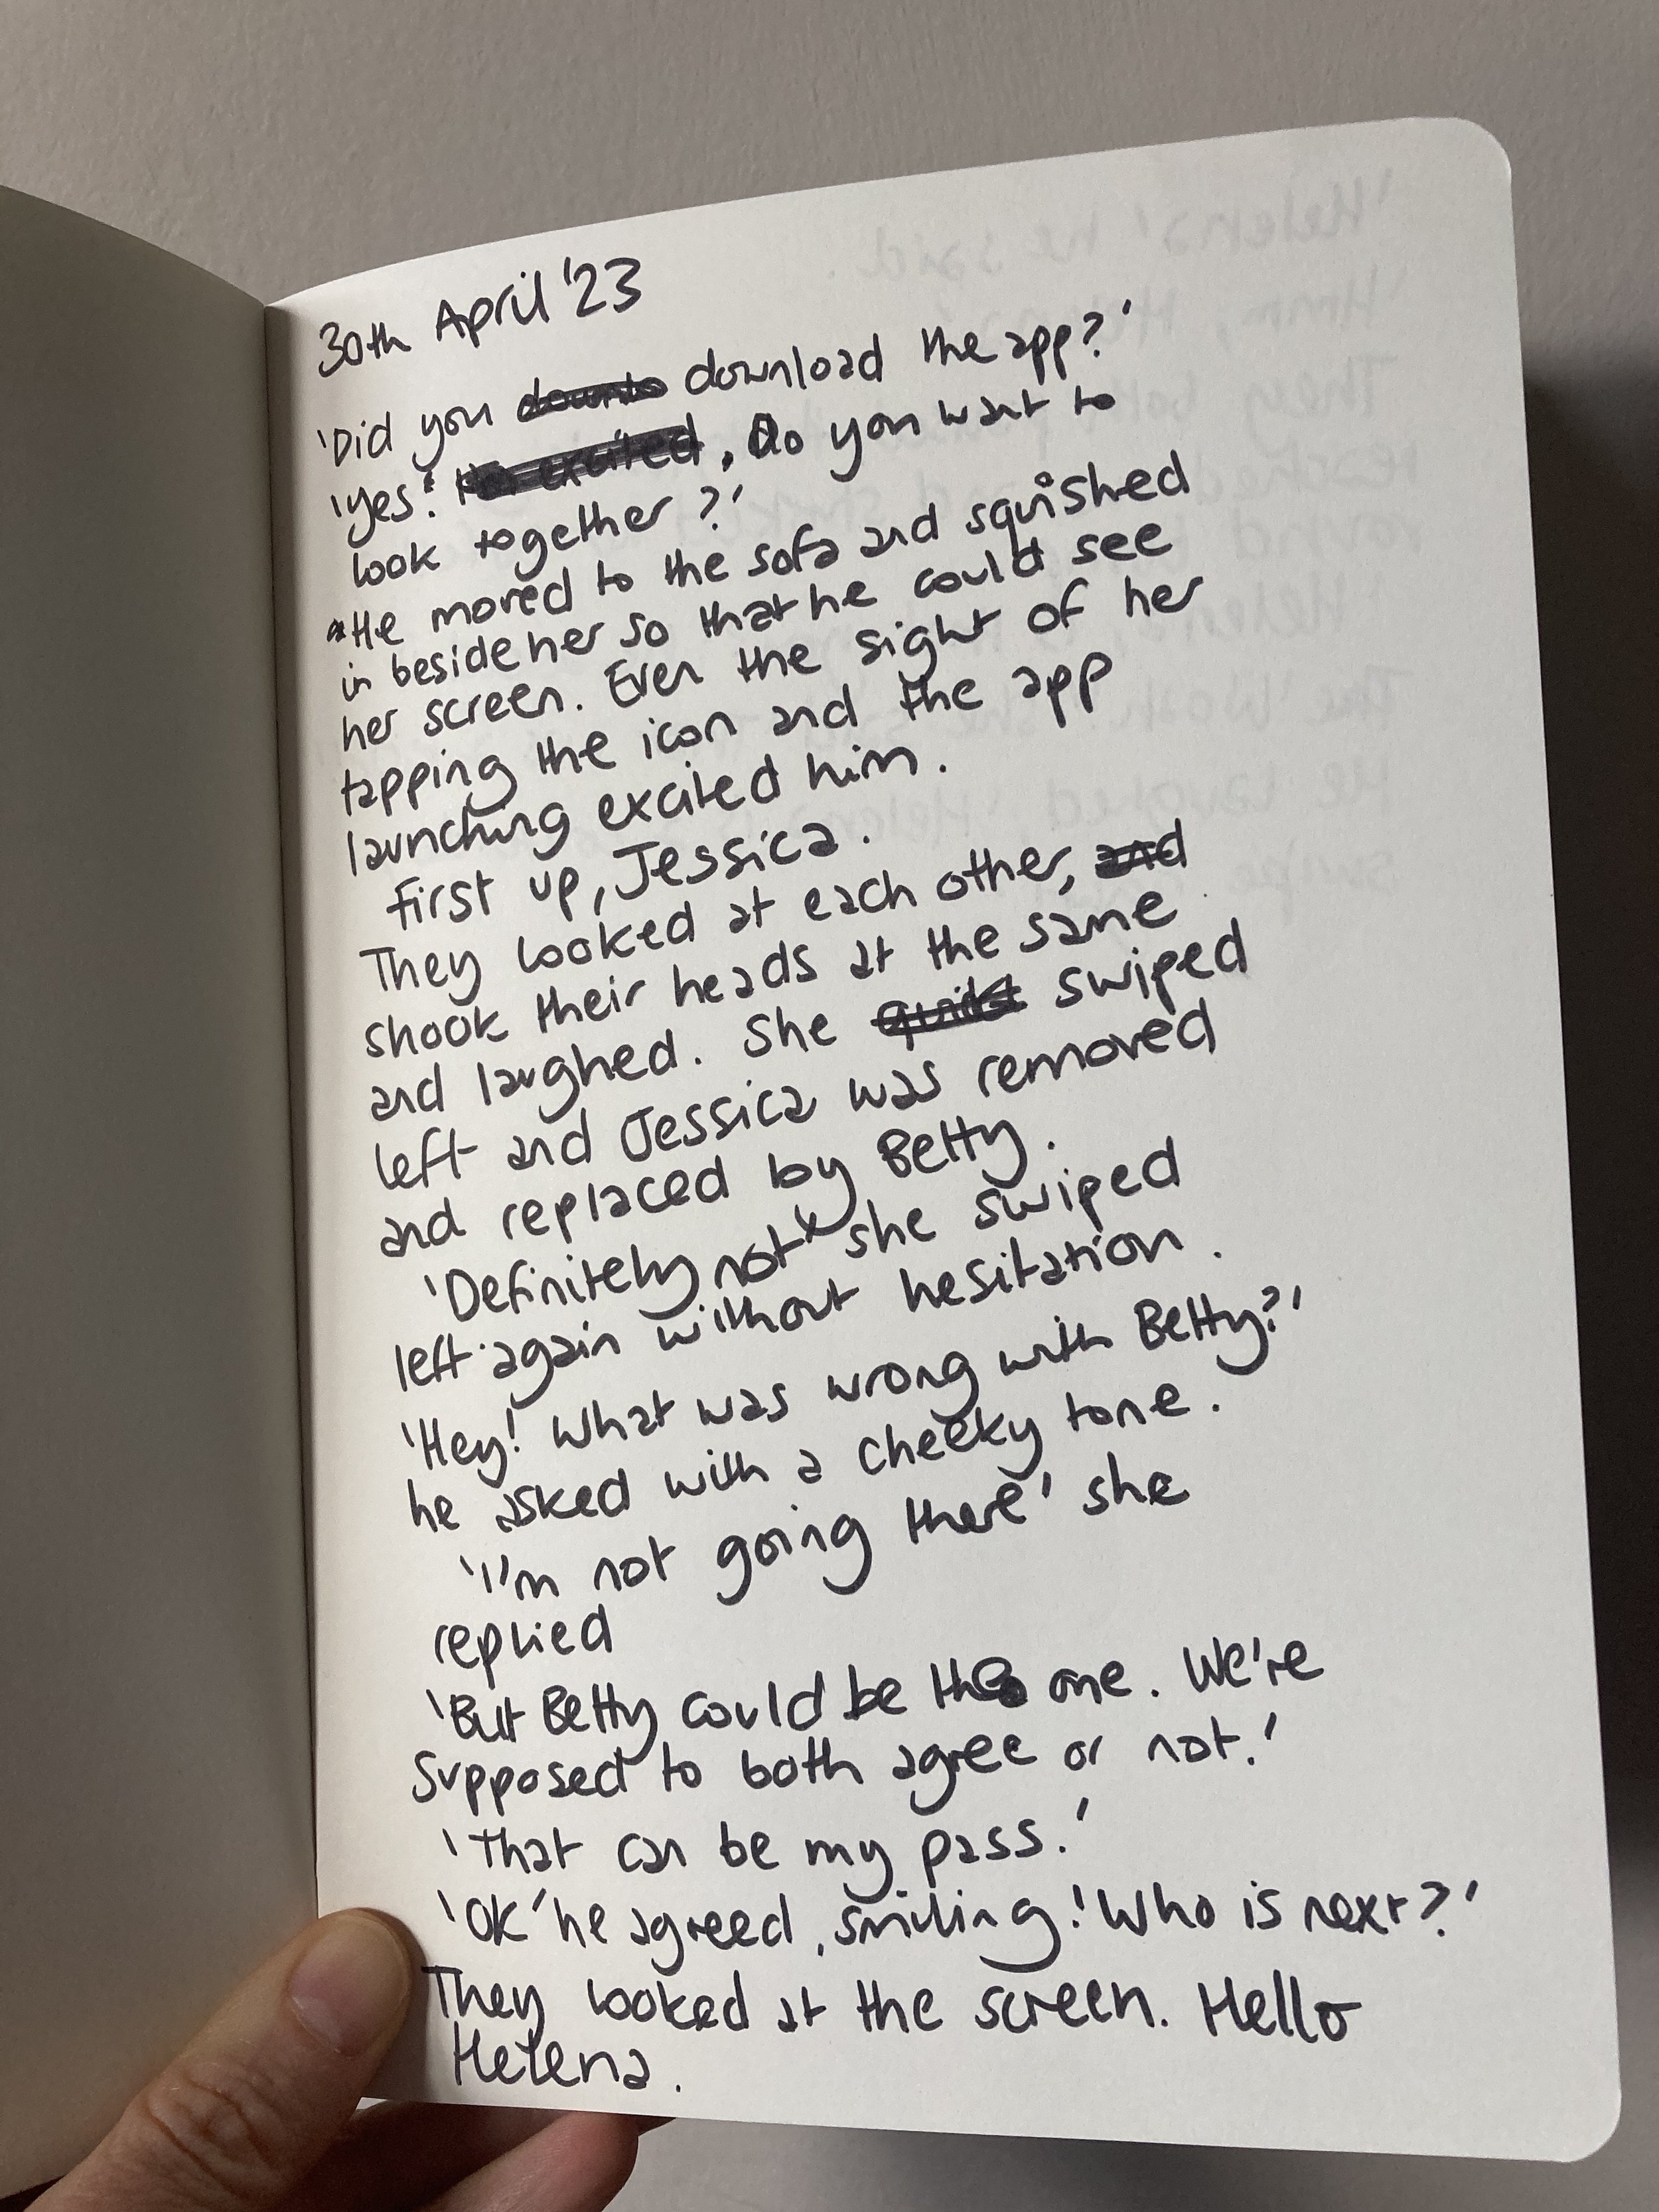 30th April '23
'Did you downlo download the app?'
'Yes. I'm excited, Do you want to
look together?'
He moved to the sofa and squished
in beside her so that he could see
her screen. Even the sight of her
tapping the icon and the app
launching excited him.
First up, Jessica.
They looked at each other, and
shook their heads at the same
and laughed. She swiped
left and Jessica was removed
and replaced by Betty.
'Definitely not' she swiped
left again without hesitation.
'Hey! What was wrong with Betty?'
he asked with a cheeky tone.
'I'm not going there' she
replied
'But Betty could be the one. We're
supposed to both agree or not.'
'That can be my pass.'
'OK' he agreed, smiling. 'Who is next?'
They looked at the screen. Hello
Helena.